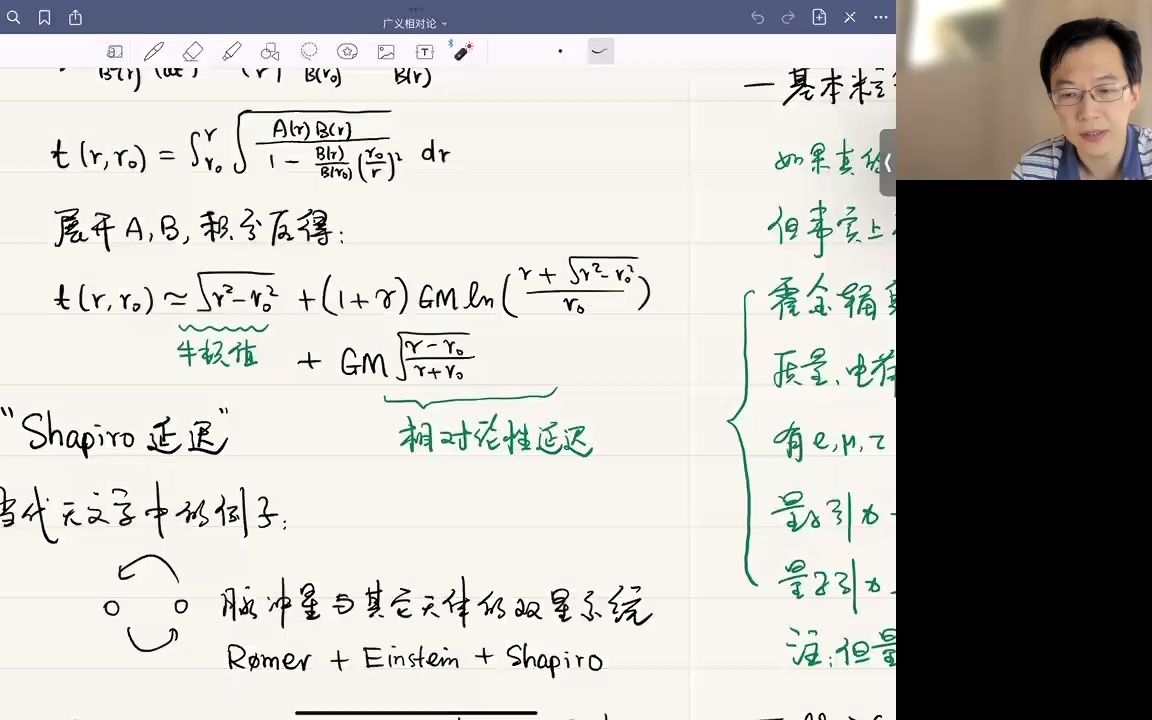 广义相对论
t(r,r₀) = ∫_{r₀}^{r} √( A(r)B(r) / (1 - B(r)/B(r₀) (r₀/r)²) ) dr
展开A,B,积分后得:
t(r,r₀) ≃ √(r²-r₀²) + (1+γ) GM ln( (r + √(r²-r₀²)) / r₀ )
牛顿值
+ GM √( (r-r₀) / (r+r₀) )
"Shapiro 延迟"
相对论性延迟
当代天文学中的例子:
脉冲星与其它天体的双星系统
Rømer + Einstein + Shapiro
一基本粒
如果真
但事实上
霍金辐
质量、电荷
有e,μ,τ
量子引力
量子引力
注:但量